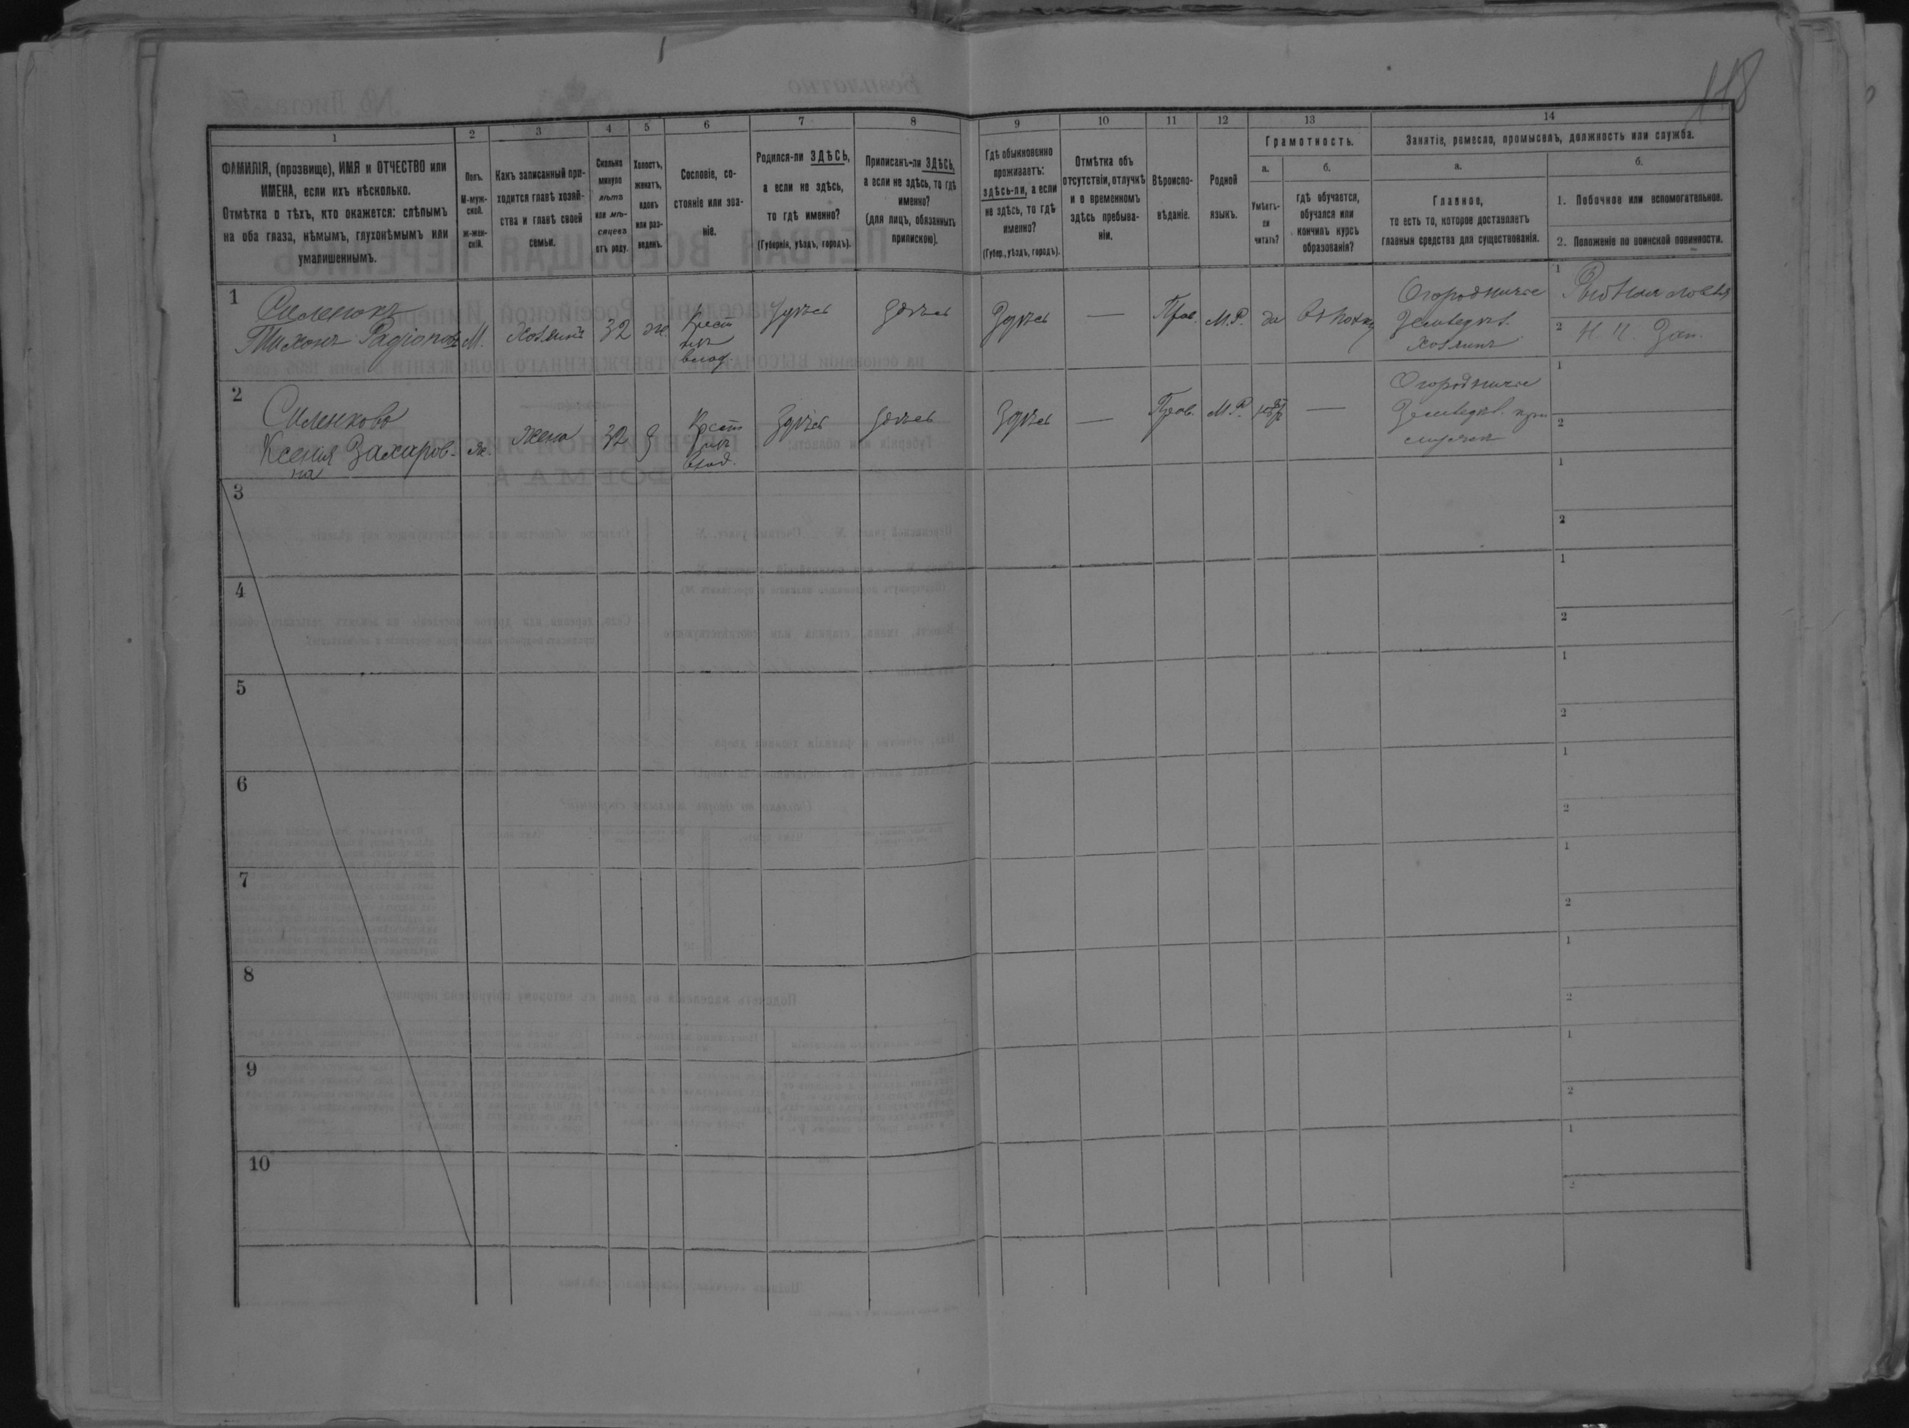 118
1
2
3
4
5
6
7
8
9
10
11
12
13
14
ФАМИЛІЯ, (прозвище), ИМЯ и ОТЧЕСТВО или
ИМЕНА, если ихъ нѣсколько.
Отмѣтка о тѣхъ, кто окажется: слѣпымъ
на оба глаза, нѣмымъ, глухонѣмымъ или
умалишеннымъ.
Полъ.
М-муж-
ской.
Ж-жен-
скій.
Какъ записанный при-
ходится главѣ хозяй-
ства и главѣ своей
семьи.
Сколько
минуло
лѣтъ
или мѣ-
сяцевъ
отъ роду.
Холостъ,
женатъ,
вдовъ
или раз-
веденъ.
Сословіе, со-
стояніе или зва-
ніе.
Родился-ли ЗДѢСЬ,
а если не здѣсь,
то гдѣ именно?
(Губернія, уѣздъ, городъ).
Приписанъ-ли ЗДѢСЬ,
а если не здѣсь, то гдѣ
именно?
(для лицъ, обязанныхъ
припискою).
Гдѣ обыкновенно
проживаетъ:
здѣсь-ли, а если
не здѣсь, то гдѣ
именно?
(Губер., уѣздъ, городъ).
Отмѣтка объ
отсутствіи, отлучкѣ
и о временномъ
здѣсь пребыва-
ніи.
Вѣроиспо-
вѣданіе.
Родной
языкъ.
Грамотность.
а.
Умѣетъ-
ли
читать?
б.
гдѣ обучается,
обучался или
кончилъ курсъ
образованія?
Занятіе, ремесло, промыселъ, должность или служба.
а.
Главное,
то есть то, которое доставляетъ
главныя средства для существованія.
б.
1. Побочное или вспомогательное.
2. Положеніе по воинской повинности.
1
Силенокъ
Тимонъ Радіоновъ
М.
хозяинъ
32
ж
Крест
влад.
Здѣсь
Здѣсь
Здѣсь
—
Прав.
М.Р.
да
Огородниче
Земледѣл.
хозяинъ
1
Рыбная ловля
2
2
Силенкова
Ксенія Захаров-
на
ж.
жена
32
З
Крест
влад.
Здѣсь
Здѣсь
Здѣсь
—
Прав.
М.Р.
нѣтъ
—
Огородниче
Земледѣл. при
1
2
3
1
2
4
1
2
5
1
2
6
1
2
7
1
2
8
1
2
9
1
2
10
1
2